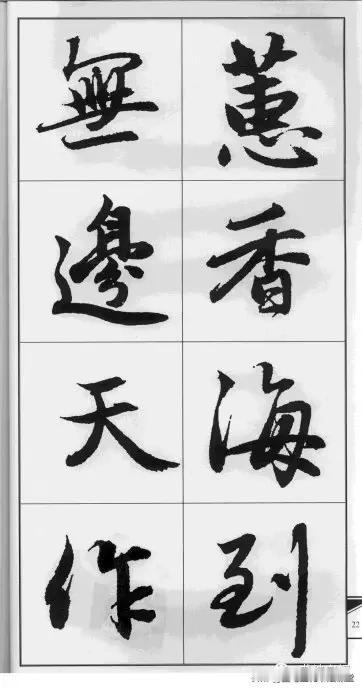 蕙香海到
無邊天作
22